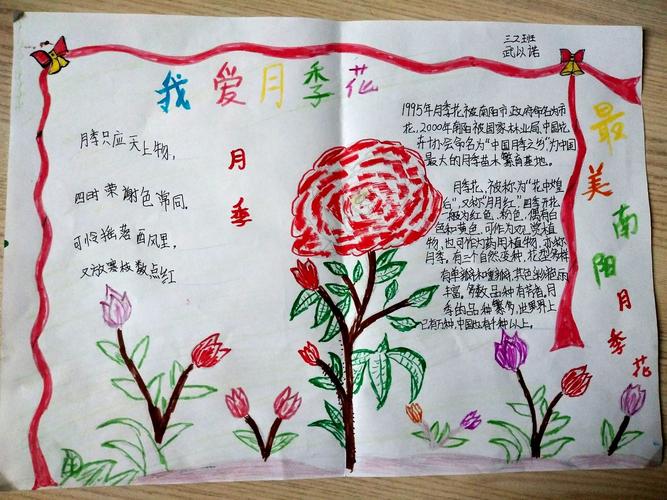 三2班
武以诺
我爱月季花
月季
月季只应天上物,
四时荣谢色常同.
可怜摇落西风里,
又放寒枝数点红
1995年月季花被南阳市政府命名为市
花.2000年南阳被国家林业局、中国花
卉协会命名为“中国月季之乡”为中国
最大的月季苗木繁育基地。
月季花,被称为“花中皇
后”,又称“月月红”四季开花,
一般为红色,粉色、偶有白
色和黄色,可作为观赏植
物、也可作为药用植物,亦称
月季.有三个自然变种,花型多样
有单瓣和重瓣,其色彩艳丽
丰富。多数品种有芳香,月
季的品种繁多,世界上
已有万种,中国也有千种以上。
最美南阳月季花